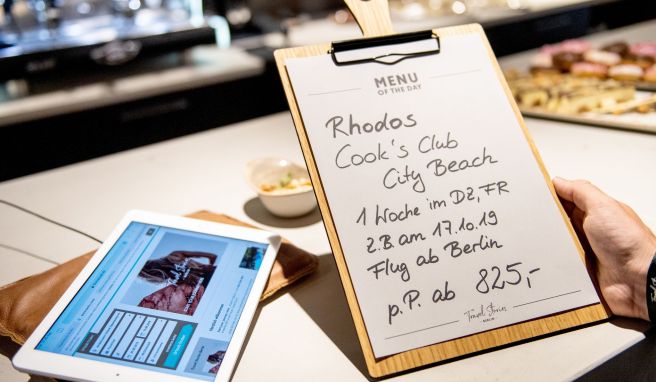 MENU
OF THE DAY
Rhodos
Cook's Club
City Beach
1 Woche im DZ, FR
z.B. am 17.10.19
Flug ab Berlin
p.P. ab 825,-
Travel Stories
BERLIN
Travel Stories